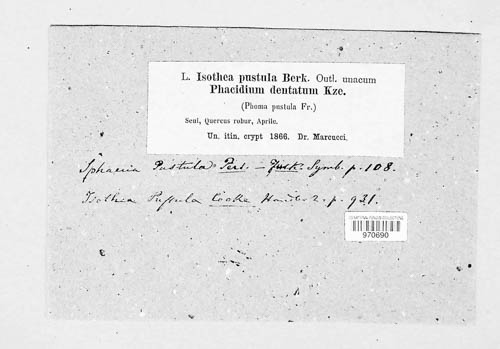 L. Isothea pustula Berk. Outl. unacum
Phacidium dentatum Kze.
(Phoma pustula Fr.)
Seui, Quercus robur, Aprile.
Un. itin. crypt 1866. Dr. Marcucci.
Sphaeria Pustula Pers. – Fuck. Symb. p. 108.
Isothea Pustula Cooke Handb. 2. p. 931.
970690